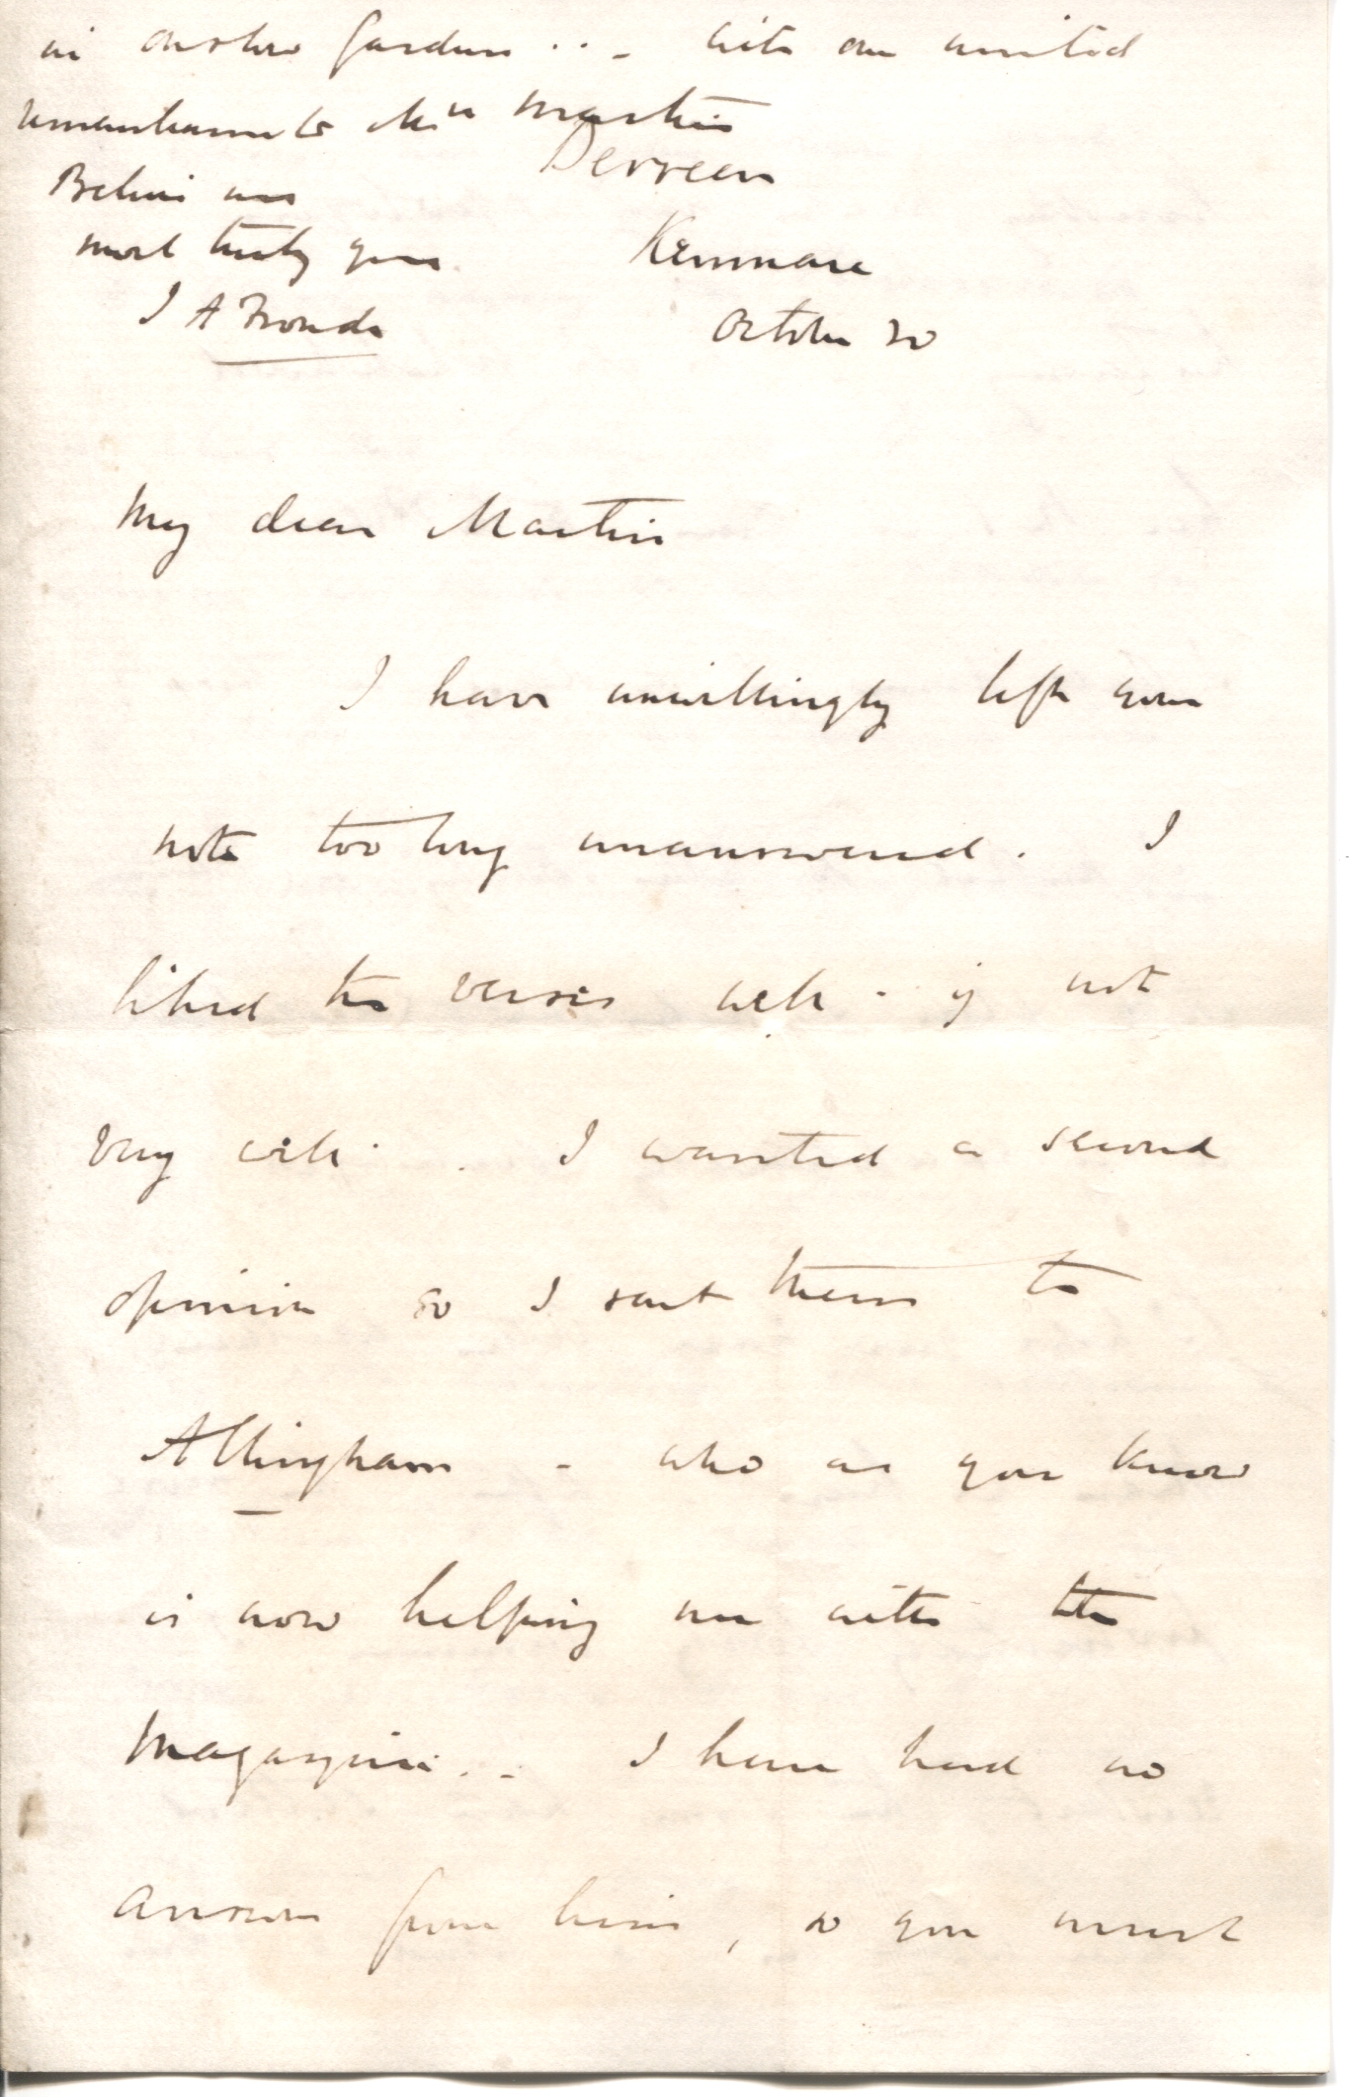 in another garden . . - with our united
remembrances to Mrs Martin
Believe me
most truly yours
J A Froude
Derreen
Kenmare
October 20
My dear Martin
I have unwillingly left your
note too long unanswered . I
liked the verses well - if not
very well . I wanted a second
opinion so I sent them to
Allingham - who as you know
is now helping me with the
Magazine . . I have had no
answer from him , so you must